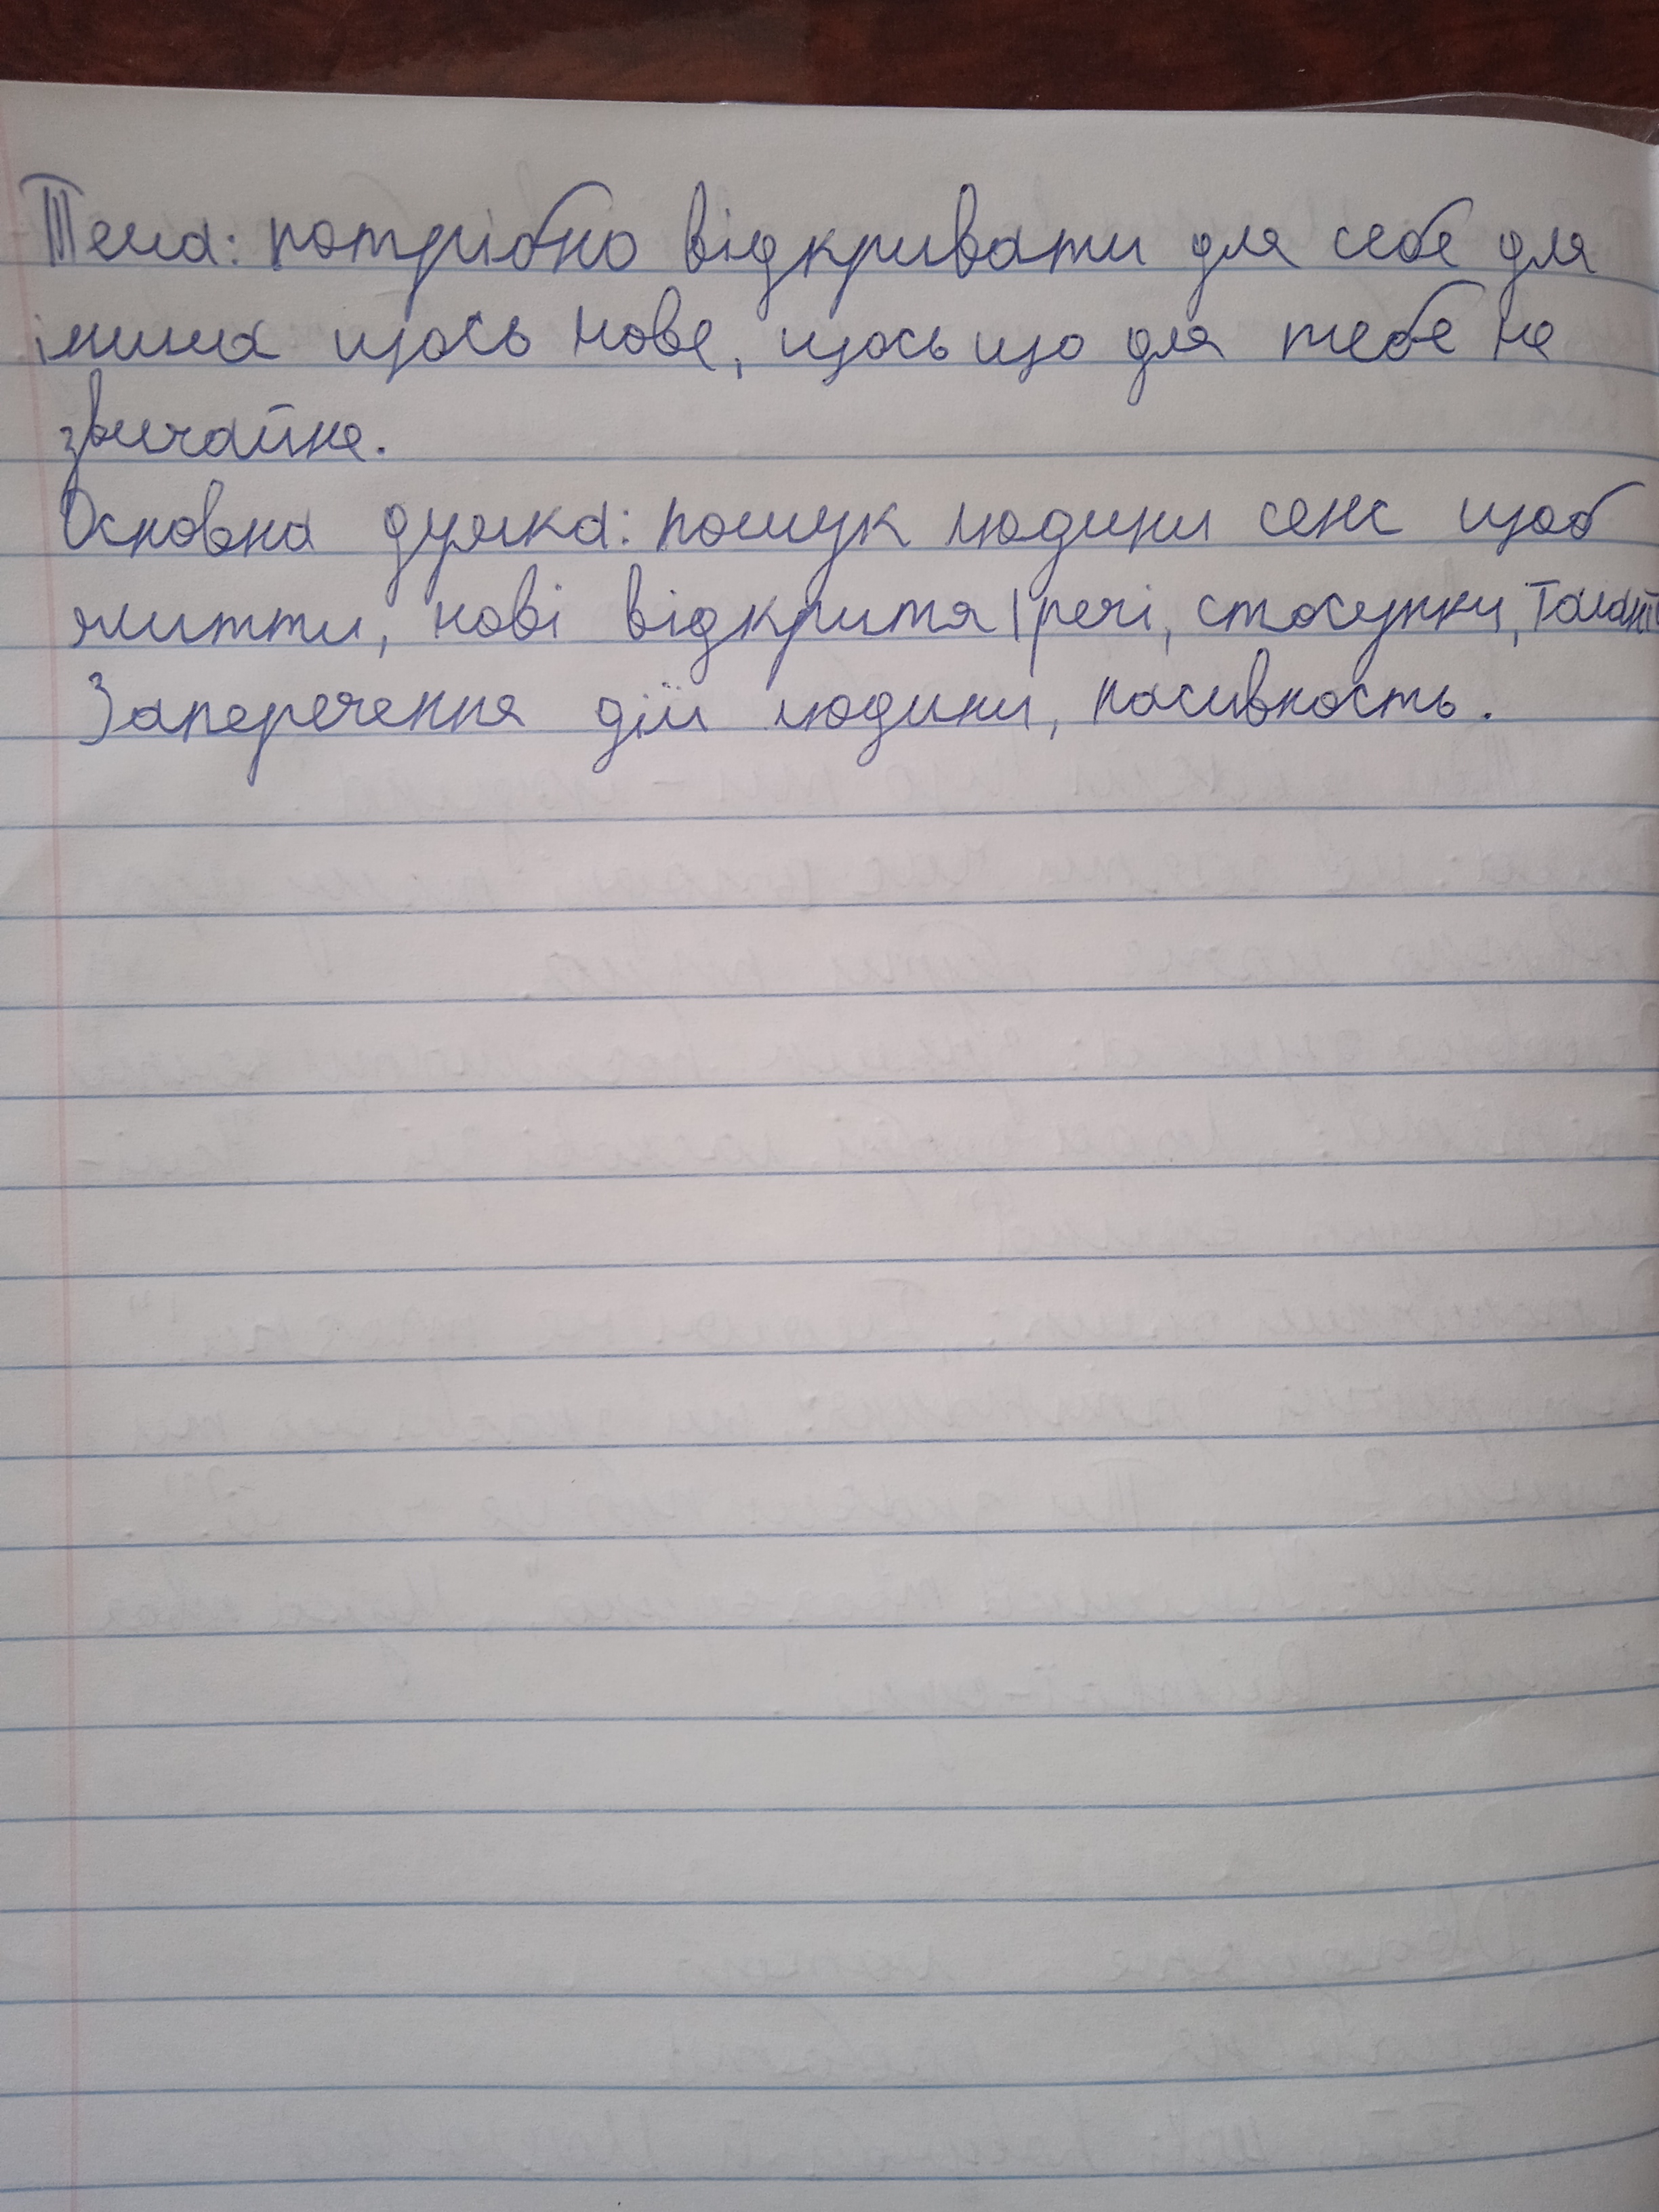 Тема: потрібно відкривати для себе для
інших щось нове, щось що для тебе не
звичайне.
Основна думка: пошук людини сенс щоб
жити, нові відкриття, речі, стосунки, талант
Заперечення дій людини, пасивность.